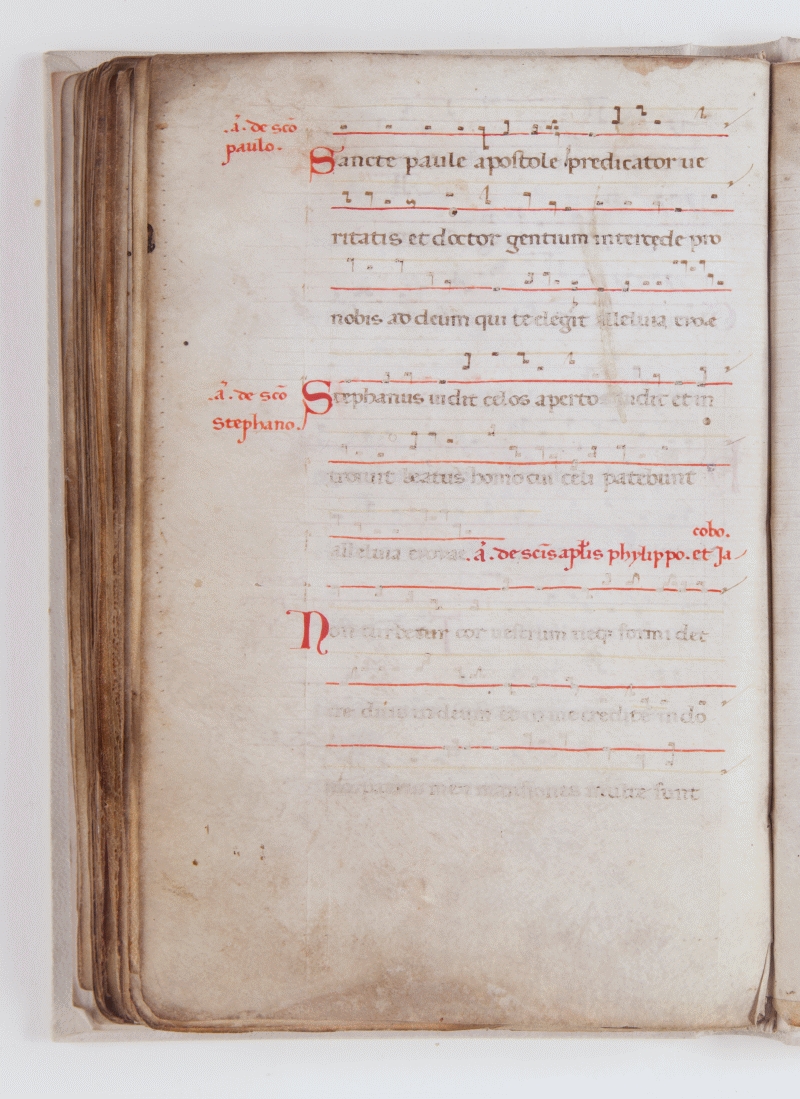 .a. de sco
paulo.
Sancte paule apostole predicator ue
ritatis et doctor gentium intercede pro
nobis ad deum qui te elegit alleluia euouae
.a. de sco
stephano.
Stephanus uidit celos aperto uidit et in
trouit beatus homo cui celi patebunt
cobo.
alleluia euouae. .a. de scis aplis phylippo. et Ja
Non turbetur cor uestrum neq; formidet
creditis in deum et in me credite in do
patris mei mansiones multe sunt